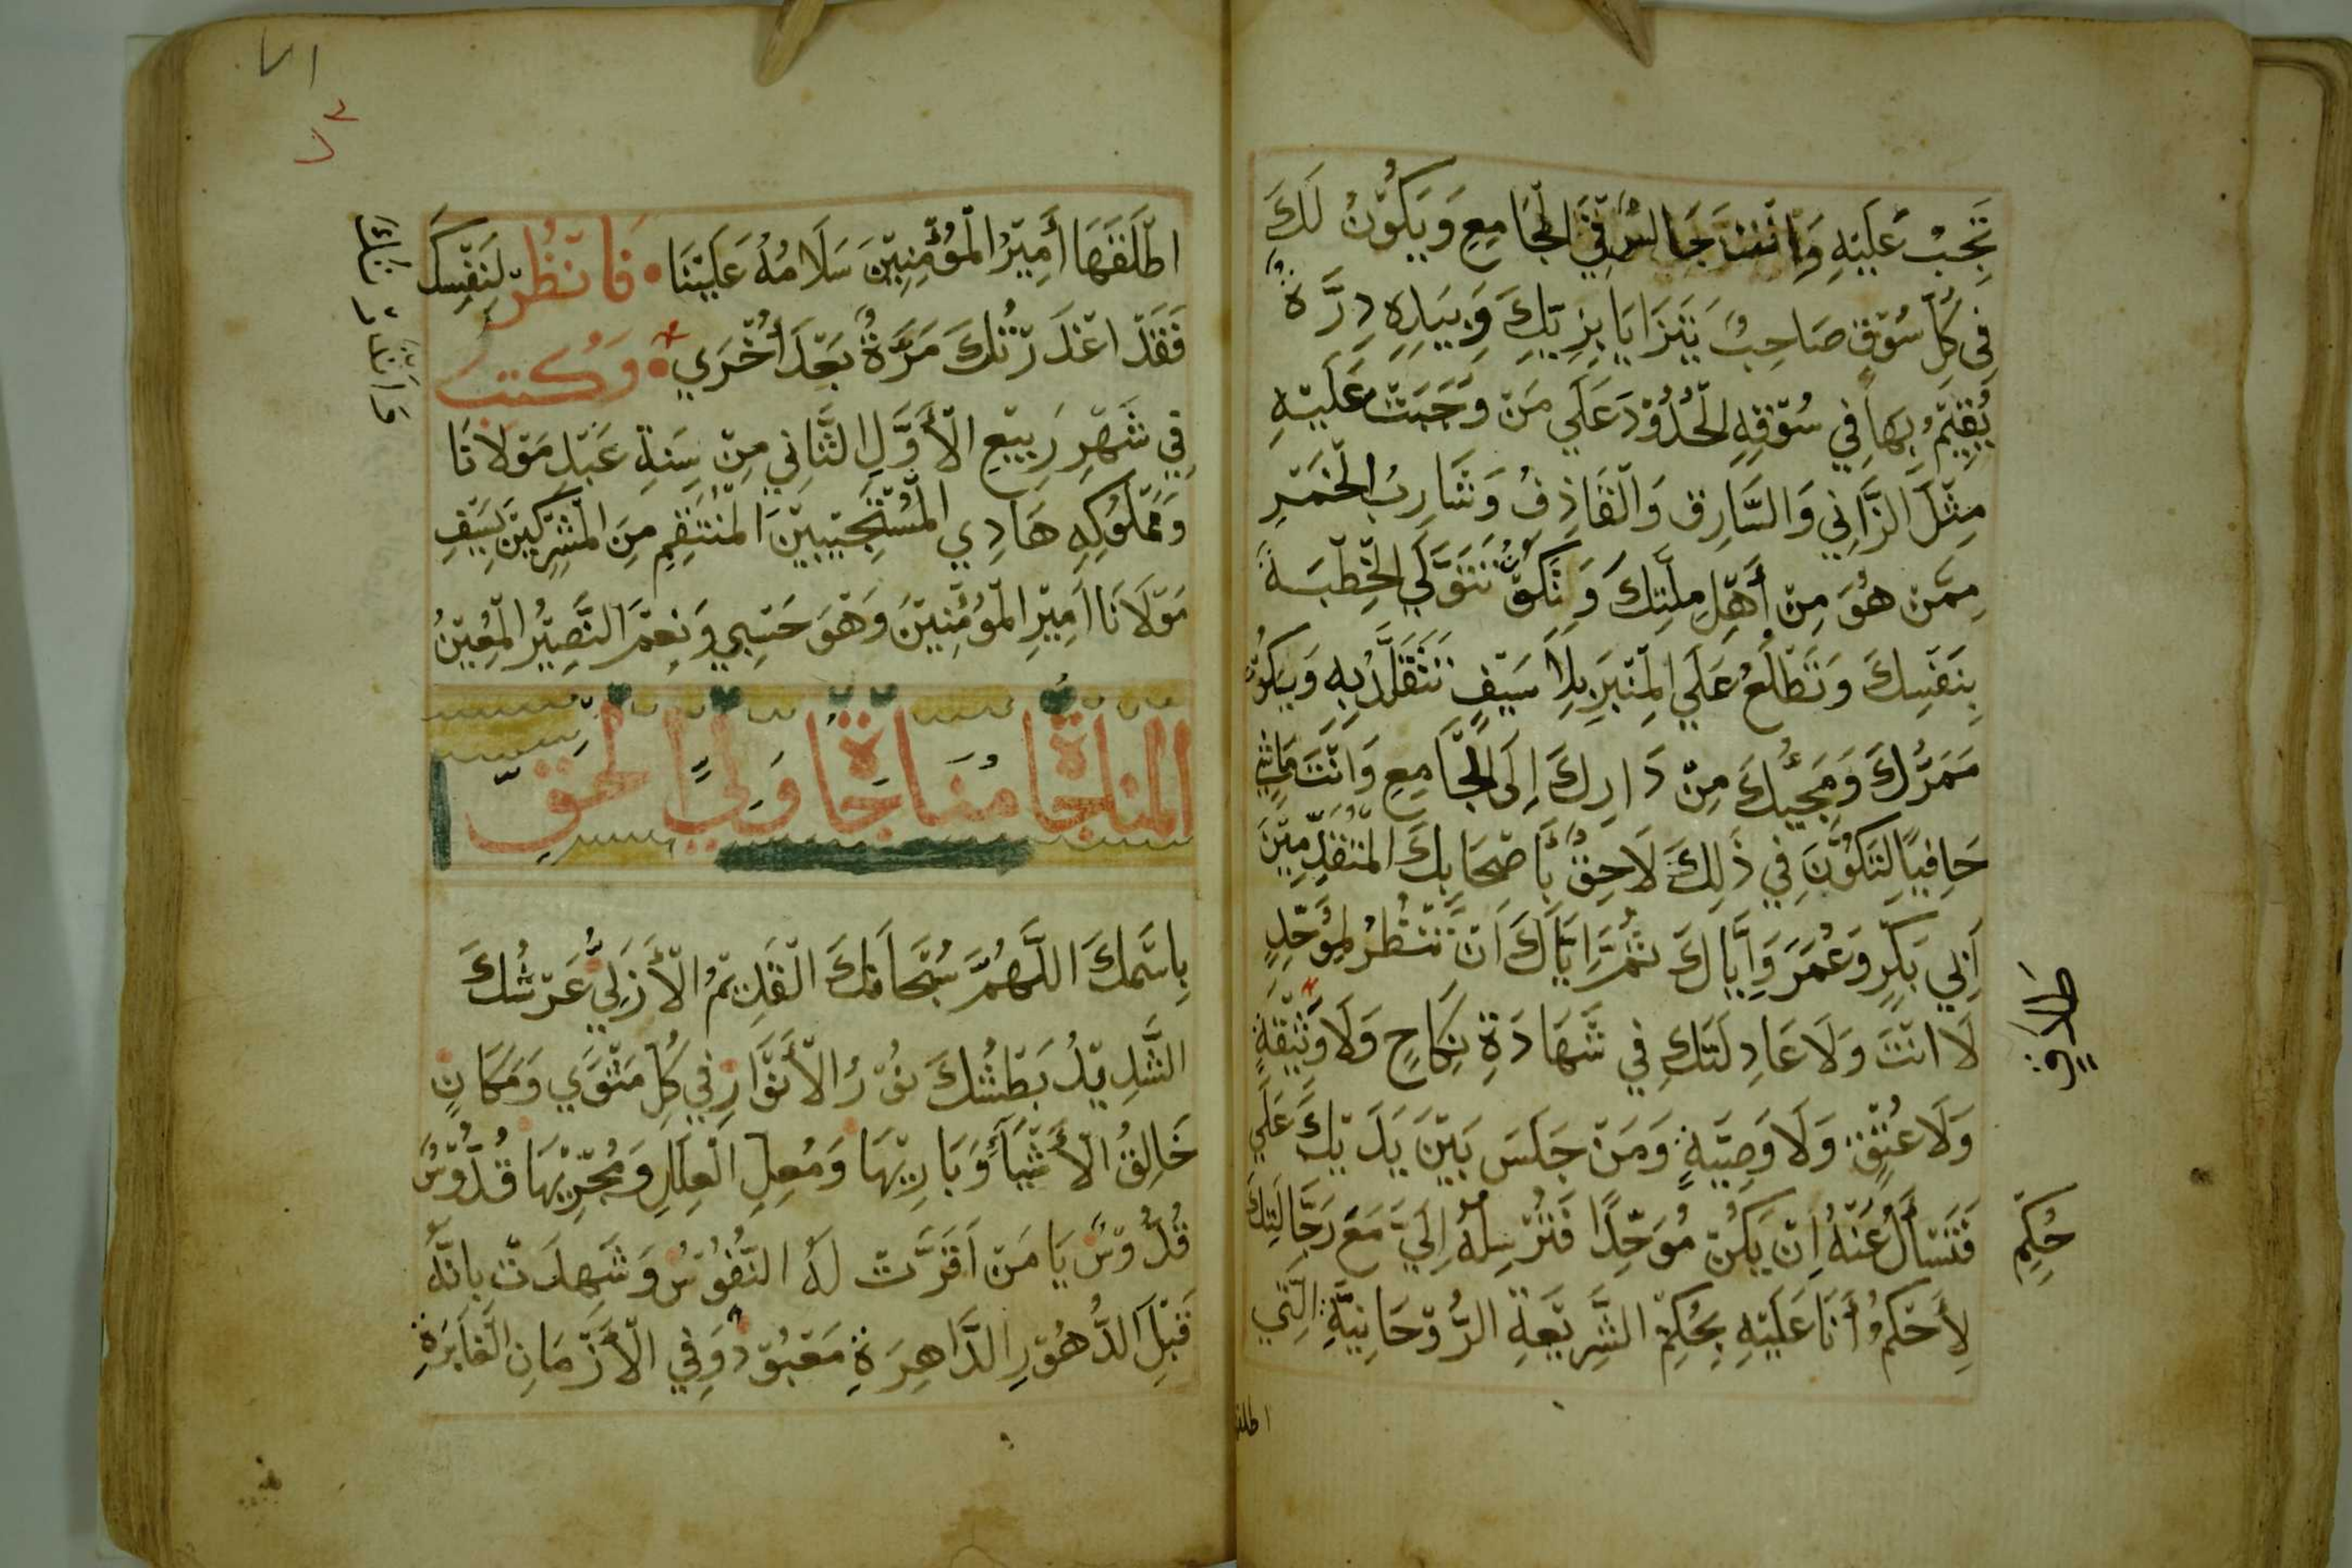 تَجِبُ عَلَيْهِ وَانْتَ جَالِسُ فِي الْجَامِعِ وَيَكُوْنُ لَكَ
فِي كُلِّ سُوْقٍ صَاحِبُ يَتَزَايَا بِزِيِّكَ وَبِيَدِهِ دِرَّة
يُقِيْمُ بِهَا فِي سُوْقِهِ الْحُدُوْدَ عَلَي مَنْ وَجَبَتْ عَلَيْهِ
مِثْلَ الزَّانِي وَالسَّارِق وَالْقَاذِفُ وَشَارِبُ الْخَمْرِ
مِمَّنْ هُوَ مِنْ أَهْلِ مِلَّتِكَ وَتَكُوْنُ تَتَوَلَّي الْخِطْبَةَ
بِنَفْسِكَ وَتَطْلُعُ عَلَي الْمِنْبَرِ بِلَا سَيْفٍ تَتَقَلَّدُ بِهِ وَيَكُوْن
مَمَرُّكَ وَمَجِيُّكَ مِنْ دَارِكَ إِلَى الْجَّامِعِ وَانْتَ مَاشِي
حَافِيًا لِتَكُوْنَ فِي ذَلِكَ لَاحِقٌ بِأَصْحَابِكَ الْمُتْقَدِّمِيْنَ
أَبِي بَكْرٍ وَعُمَرَ وَأَيَّاكَ ثُمَّ أَيَّاكَ انْ تَنْظُرُ لِمُوَحِّدٍ
لَا انْتَ وَلَا عَادِلَتِكَ فِي شَهَادَةِ نِكَاحٍ وَلَا وَثِيْقَةٍ
وَلَا عِتْقٍ وَلَا وَصِيَّةٍ وَمَنْ جَلَسَ بَيْنَ يَدَيْكَ عَلَي
فَتَسْأَلُ عَنْهُ اِنْ يَكُنْ مُوَحِّدًا فَتُرْسِلُهُ اِلَيَّ مَعَ رَجَّالَتِكَ
لِأَحْكُمُ أَنَا عَلَيْهِ بِحُكْمِ الشَّرِيْعَةِ الرُّوْحَانِيَّةِ الَّتِي
طَلَاقٍ
حُكْمِ
اطلقـ
٧١
٧٣
اطْلَقَهَا أَمِيْرُ الْمُؤْمِنِيْنَ سَلَامُهُ عَلَيْنَا • فَانْظُرْ لِنَفْسِكَ
فَقَدْ اعْذَرْتُكَ مَرَّةً بَعْدَ أُخْرَي • وَكُتِبَ
فِي شَهْرِ رَبِيْعِ الْأَوَّلِ الثَّانِي مِنْ سِنَةِ عَبْدِ مَوْلَانَا
وَمَمْلُوْكِهِ هَادِي الْمُسْتَجِيْبِيْنَ الْمُنْتَقِمِ مِنَ الْمُشْرِكِيْنَ بِسَيْفِ
مَوْلَانَا امِيْرِ الْمُؤْمِنِيْنَ وَهُوَ حَسْبِي وَنِعْمَ النَّصِيْرُ الْمُعِيْنُ
الْمُنَاجَاةُ مُنَاجَاةُ وَلِيِّ الْحَقِّ
بِاسْمِكَ اللَّهُمَّ سُبْحَانَكَ الْقَدِيْمُ الْأَزَلِيُّ عَرْشُكَ
الشَّدِيْدُ بَطْشُكَ نُوْرُ الْأَنْوَارِ فِي كُلِّ مَثْوَي وَمَكَانٍ
خَالِقُ الْأَشْيَآءِ وَبَارِيْهَا وَمُعِلِّ الْعِلَلِ وَمُجْرِيْهَا قُدُّوْسٌ
قُدُّوْسٌ يَا مَنْ اَقَرَّتْ لَهُ النُّفُوْسُ وَشَهِدَتْ بِانَّهُ
قَبْلَ الدُّهُوْرِ الدَّاهِرَةِ مَعْبُوْدٌ وَفِي الْأَزْمَانِ الْغَابِرَةِ